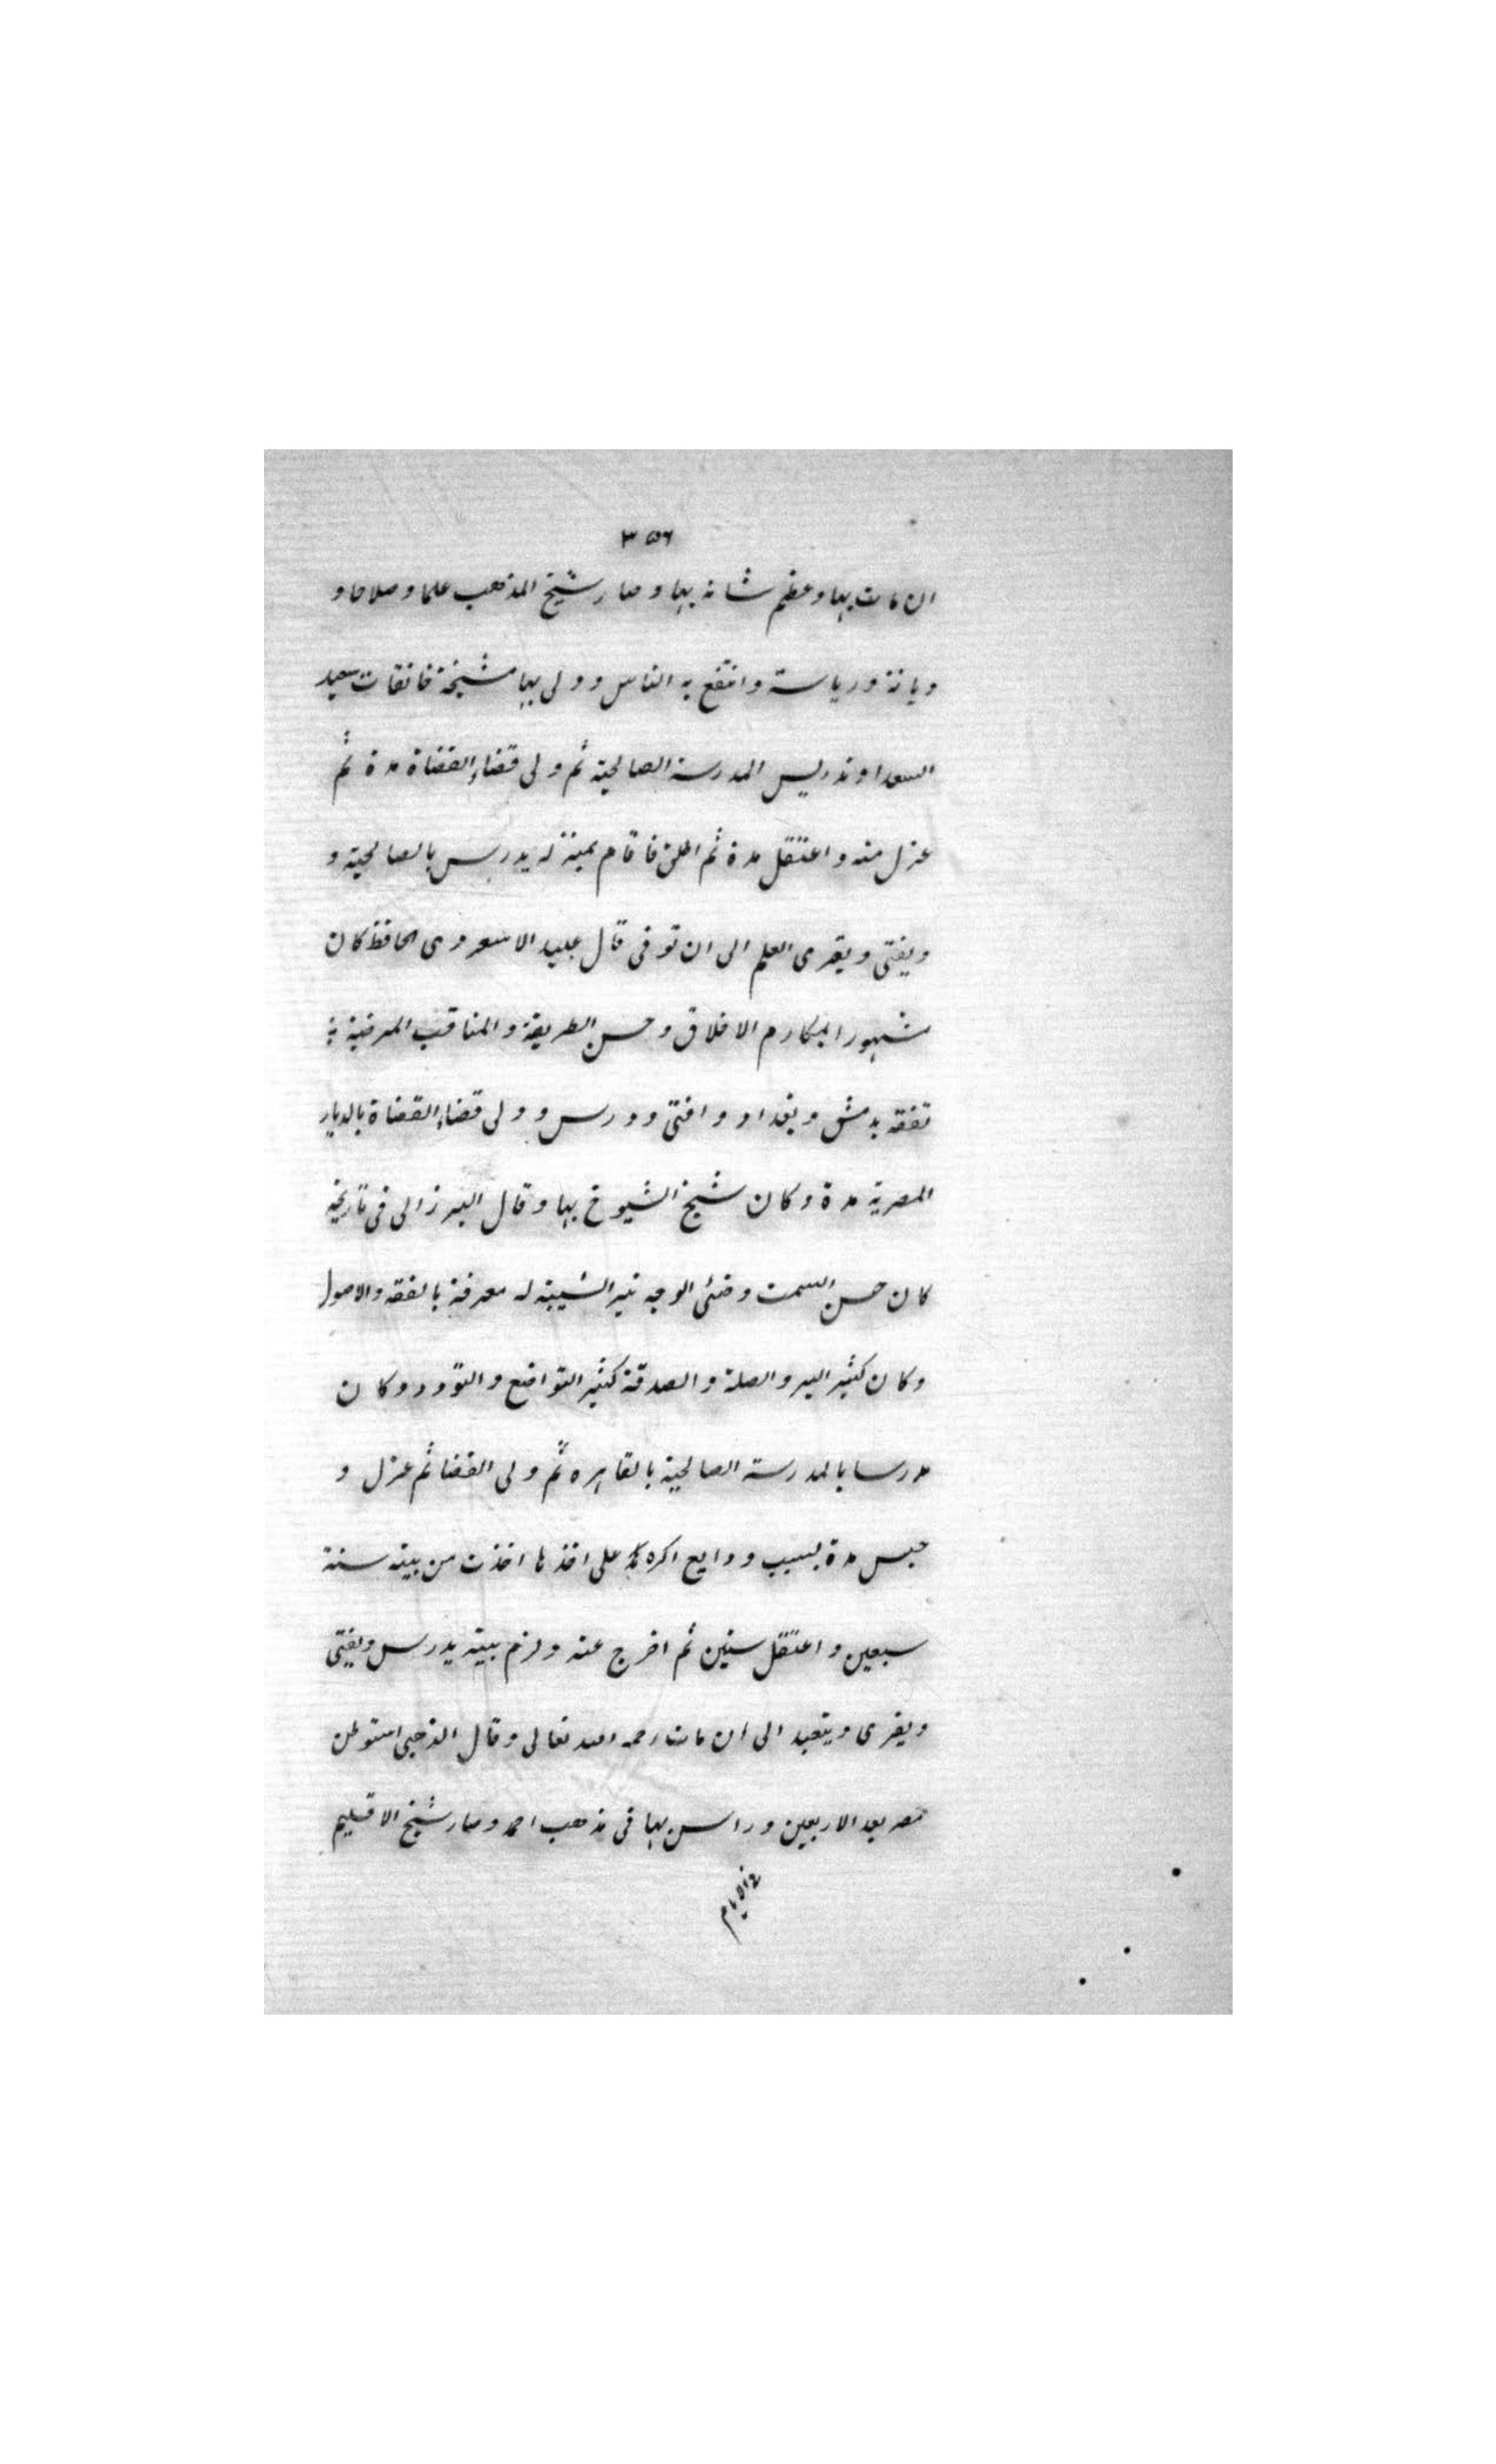 ٣٥٦
ان مات بها وعظم شانه بها وصار شيخ المذهب علما وصلاحا و
ديانة ورياسة وانتفع به الناس وولى بها مشيخة خانقات سعيد
السعدا وتدريس المدرسة الصالحية ثم ولى قضاء القضاة مدة ثم
عزل منه واعتقل مدة ثم اطلق فاقام بمنزله يدرس بالصالحية و
ويفتى ويقرى العلم الى ان توفى قال عبيد الاسعردى الحافظ كان
مشهورا بمكارم الاخلاق وحسن الطريقة والمناقب المرضية
تفقه بدمشق وبغداد وافتى ودرس وولى قضاء القضاة بالديار
المصرية مدة وكان شيخ الشيوخ بها وقال البرزالى فى تاريخه
كان حسن السمت وضئى الوجه نير الشيبة له معرفة بالفقه والاصول
وكان كثير البر والصلة والصدقة كثير التواضع والتودد وكان
مدرسا بالمدرسة الصالحية بالقاهره ثم ولى القضا ثم عزل و
حبس مدة بسبب ودايع اكره على اخذها اخذت من بيته سنة
سبعين واعتقل سنين ثم افرج عنه ولزم بيته يدرس ويفتى
ويقرى ويتعبد الى ان مات رحمه الله تعالى وقال الذهبى استوطن
مصر بعد الاربعين وراس بها فى مذهب احمد وصار شيخ الاقليم
فى الايام